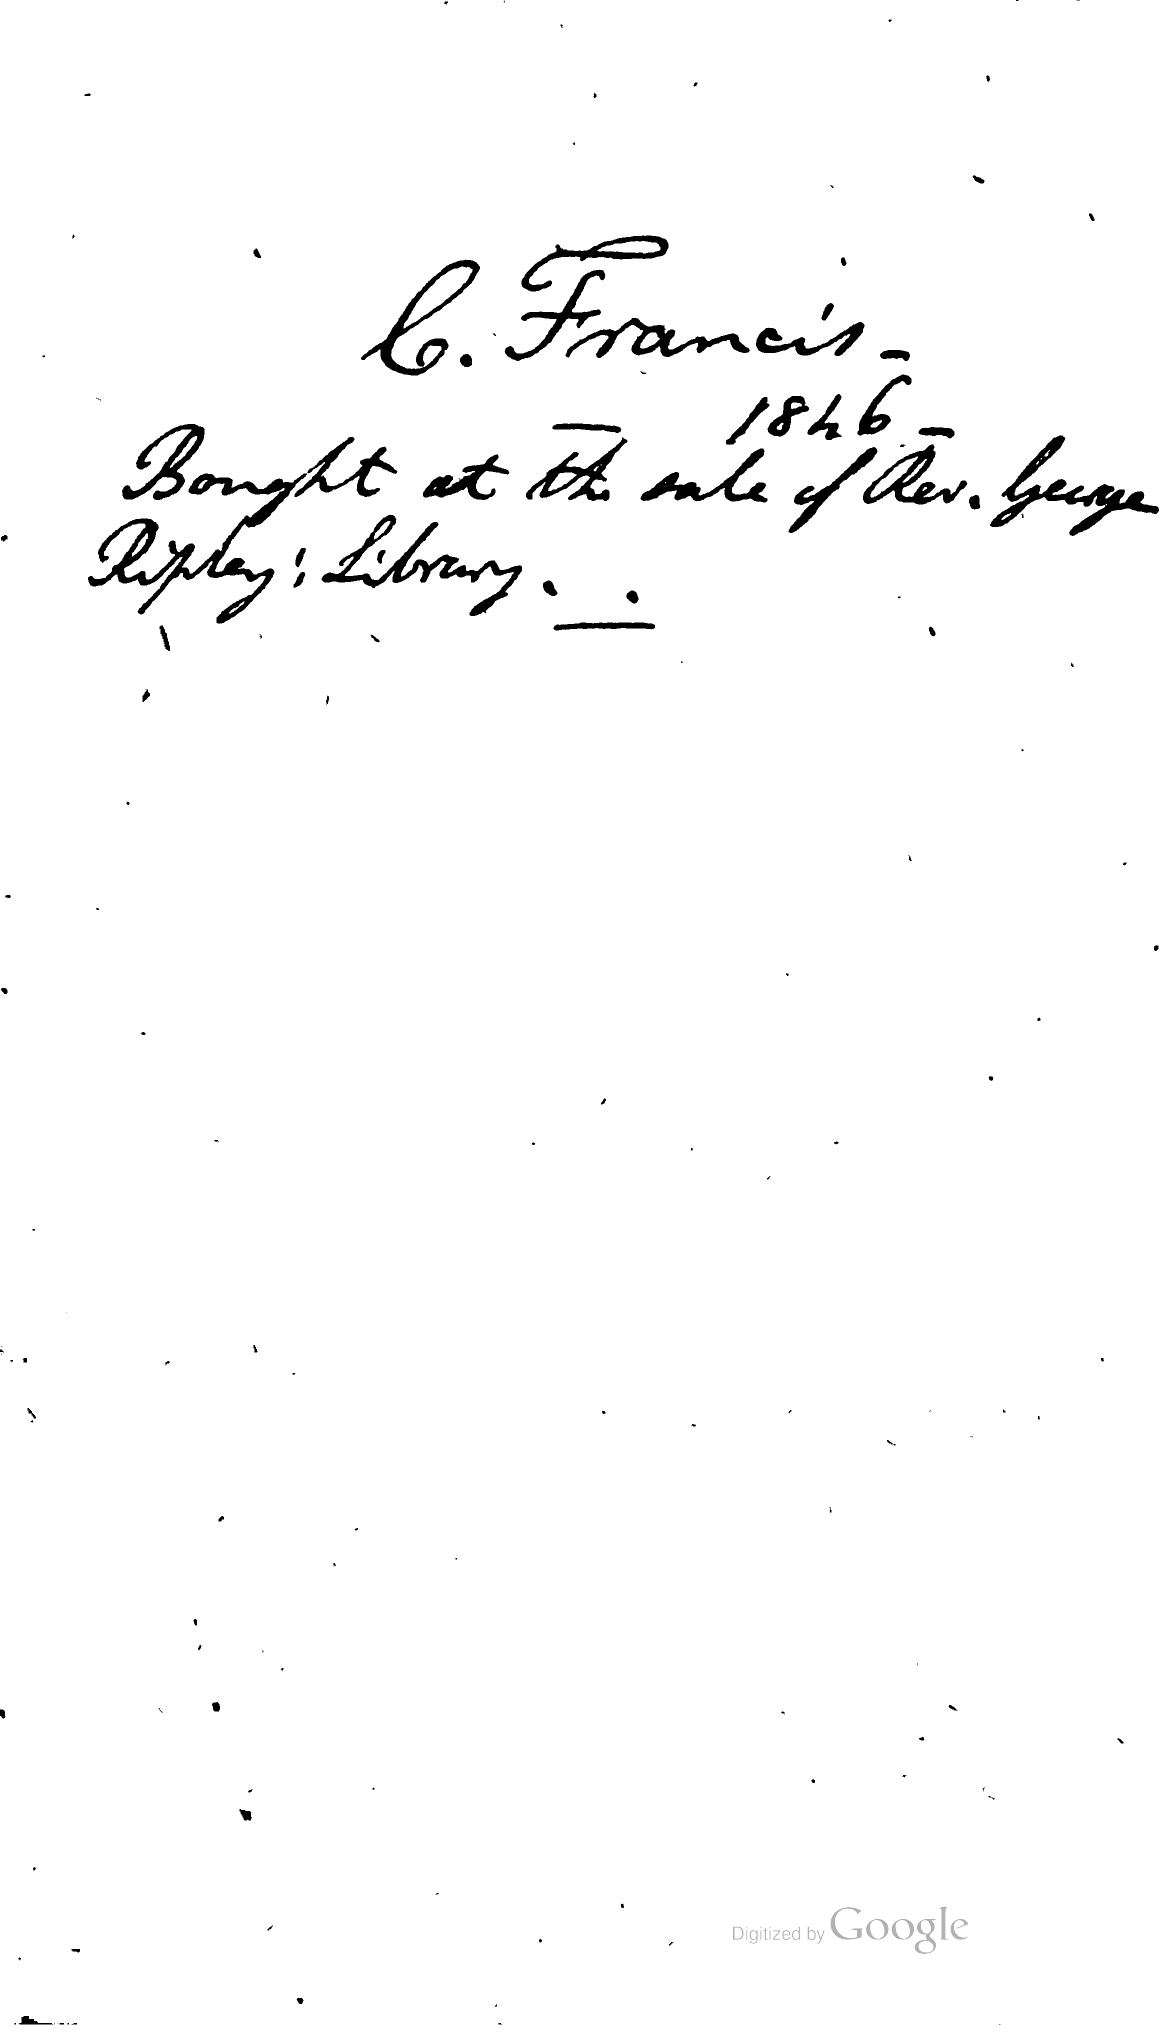 C. Francis –
1846 –
Bought at the sale of Rev. George
Ripley's Library.
Digitized by Google